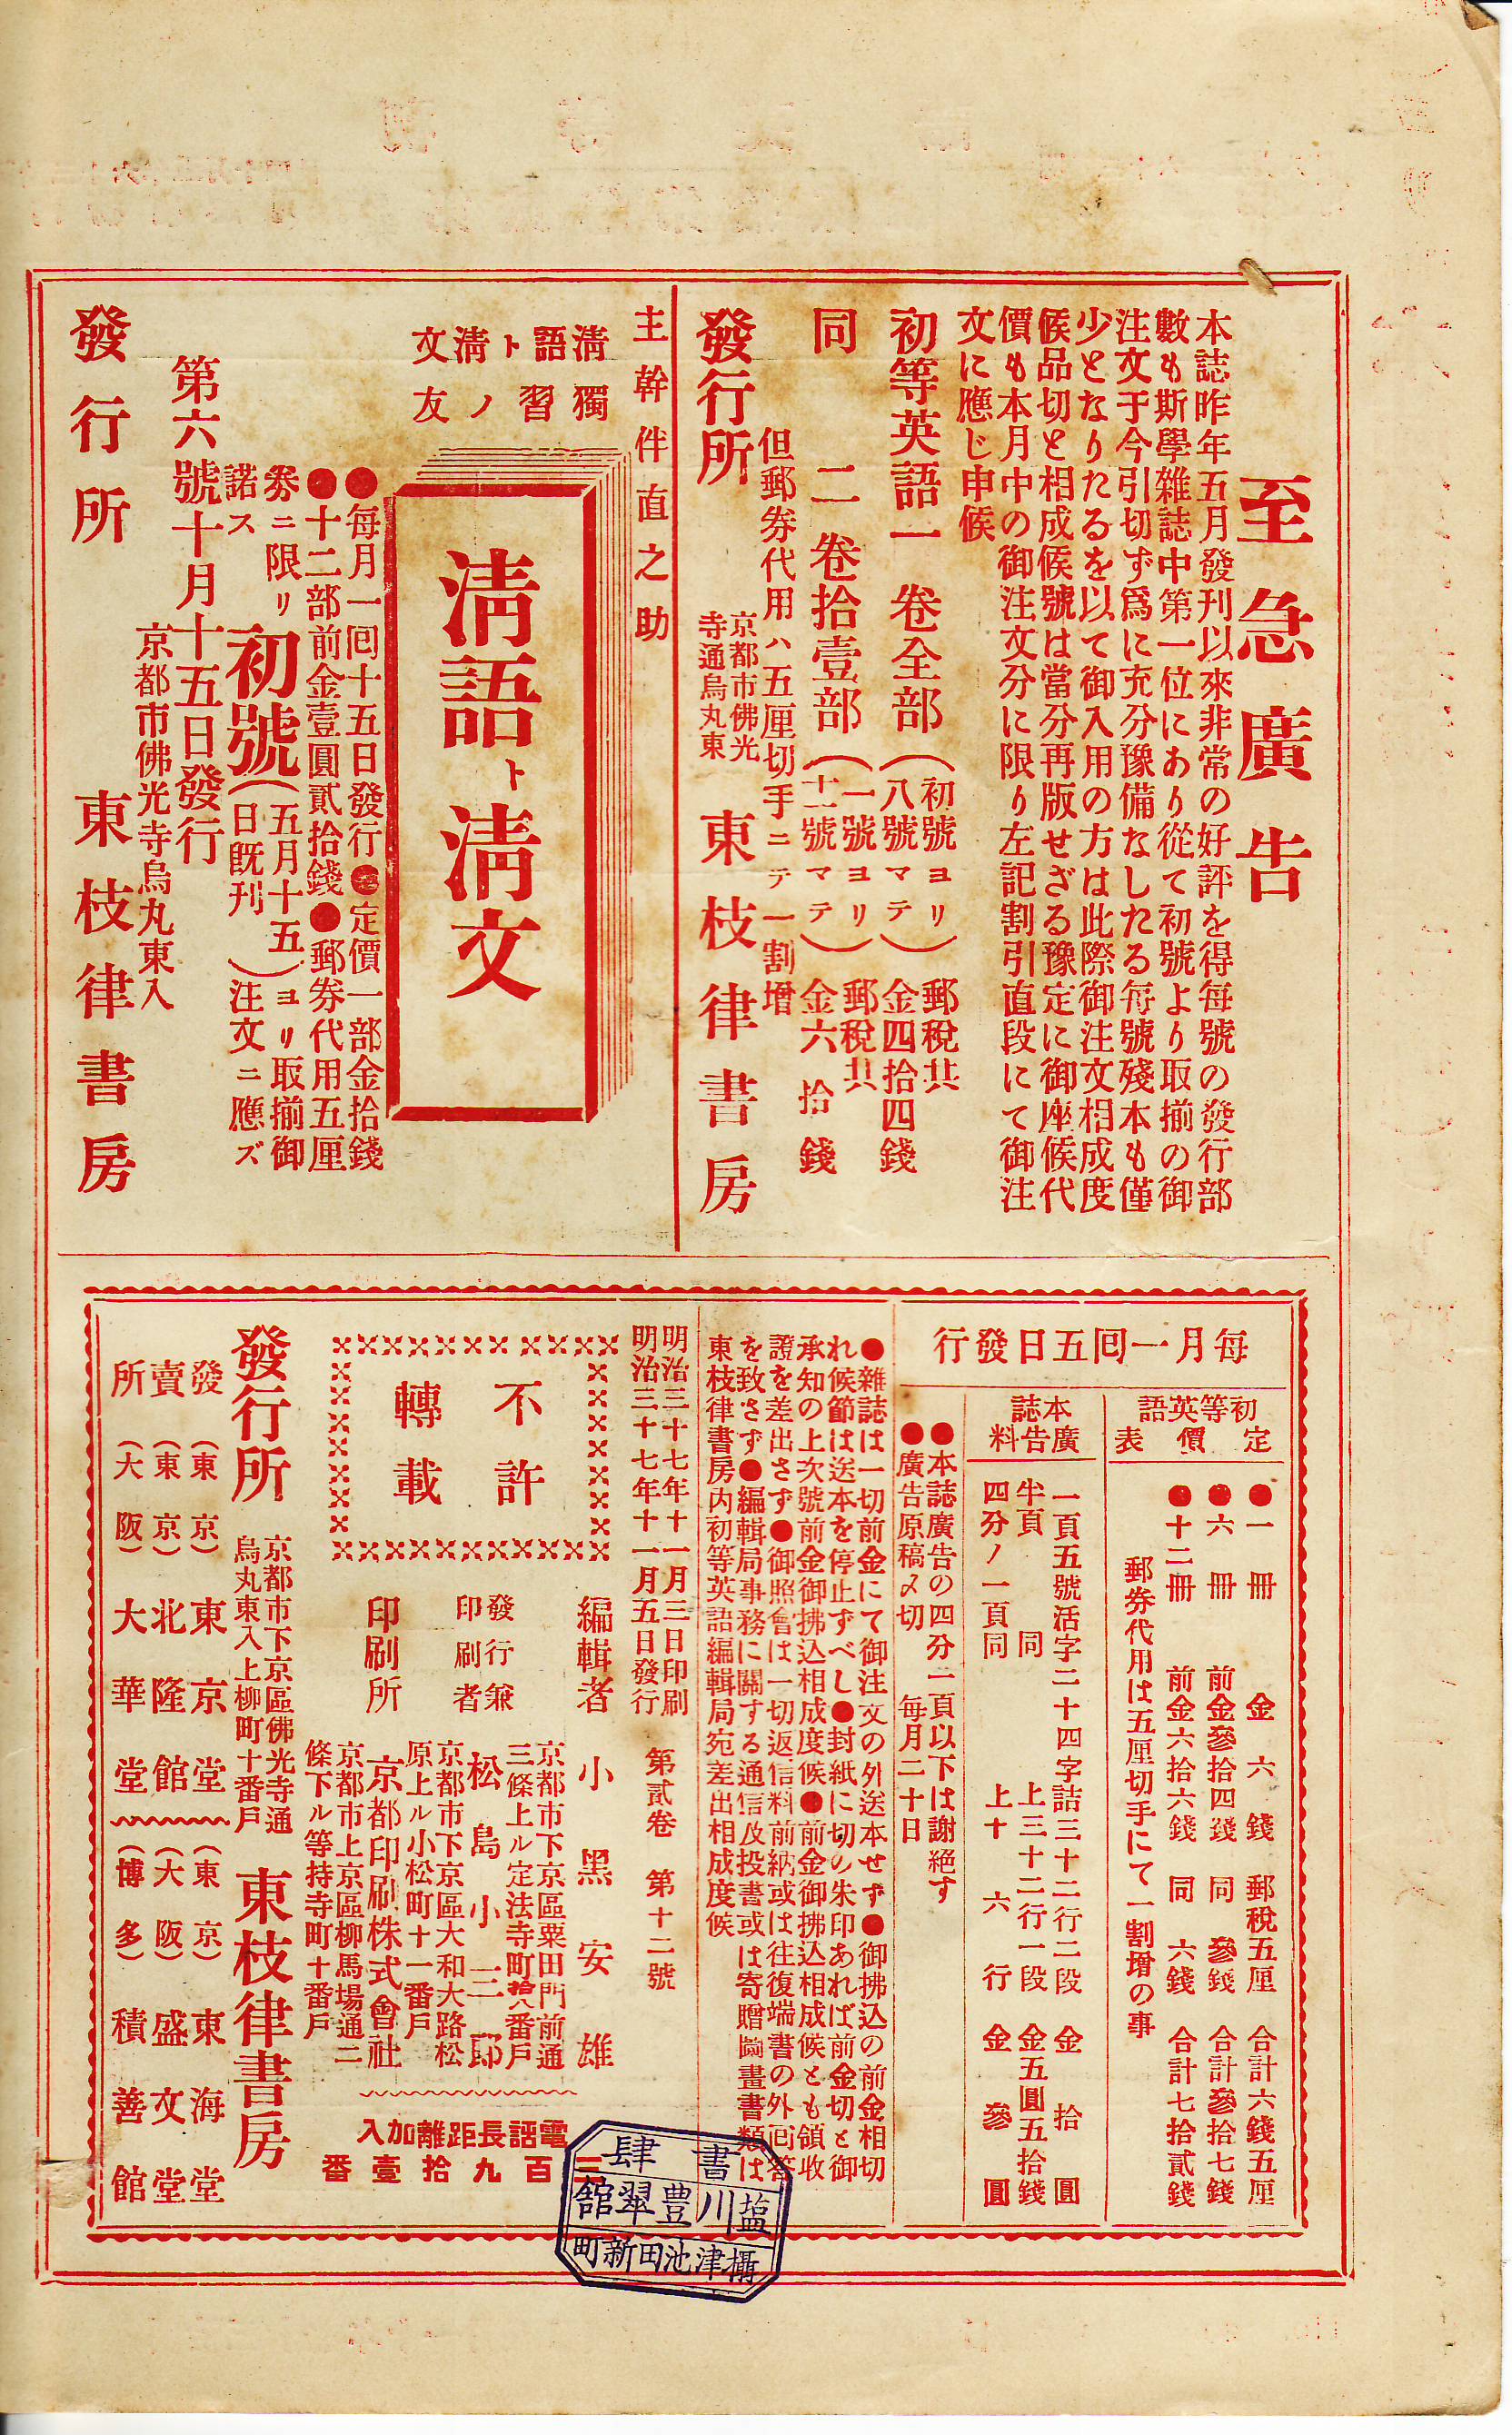 至急廣告
本誌昨年五月發刊以來非常の好評を得每號の發行部
數も斯學雜誌中第一位にあり從て初號より取揃の御
注文于今引切ず爲に充分豫備なしたる每號殘本も僅
少となりたるを以て御入用の方は此際御注文相成度
候品切と相成候號は當分再版せざる豫定に御座候代
價も本月中の御注文分に限り左記割引直段にて御注
文に應じ申候
初等英語一卷全部(初號ヨリ八號マテ)郵稅共金四拾四錢
同二卷拾壹部(一號ヨリ十一號マテ)郵稅共金六拾錢
但郵券代用ハ五厘切手ニテ一割增
發行所 京都市佛光寺通烏丸東 東枝律書房
主幹伴直之助
淸語獨習
ト淸文ノ友
淸語ト淸文
●每月一回十五日發行●定價一部金拾錢
●十二部前金壹圓貳拾錢●郵券代用五厘
券ニ限リ初號(五月十五日既刊)ヨリ取揃御注文ニ應ズ
諾ス
第六號十月十五日發行
京都市佛光寺烏丸東入
發行所 東枝律書房
每月一回五日發行
初等英語定價表
●一冊 金六錢 郵稅五厘 合計六錢五厘
●六冊 前金參拾四錢 同參錢 合計參拾七錢
●十二冊 前金六拾六錢 同六錢 合計七拾貳錢
郵券代用は五厘切手にて一割增の事
本誌廣告料
一頁五號活字二十四字詰三十二行二段 金拾圓
半頁 同 上三十二行一段 金五圓五拾錢
四分ノ一頁同 上十六行 金參圓
●本誌廣告の四分一頁以下は謝絕す
●廣告原稿〆切 每月二十日
●雜誌は一切前金にて御注文の外送本せず●御拂込の前金相切
れ候節は送本を停止ずべし●封紙に切の朱印あれば前金切と御
承知の上次號前金御拂込相成度候●前金御拂込相成候とも領收
證を差出さず●御照會は一切返信料前納或は往復端書の外回答
を致さず●編輯局事務に關する通信及投書或は寄贈圖畫書類は
東枝律書房内初等英語編輯局宛差出相成度候
明治三十七年十一月三日印刷
明治三十七年十一月五日發行
第貳卷第十二號
不許
轉載
編輯者 小黑安雄
京都市下京區粟田門前通
三條上ル定法寺町拾八番戶
發行兼
印刷者 松島小三郎
京都市下京區大和大路松
原上ル小松町十一番戶
印刷所 京都印刷株式會社
京都市上京區柳馬場通二
條下ル等持寺町十番戶
電話長距離加入
三百九拾壹番
發行所 京都市下京區佛光寺通
烏丸東入上柳町十番戶 東枝律書房
發賣所
(東京)東京堂 (東京)東海堂
(東京)北隆館 (大阪)盛文堂
(大阪)大華堂 (博多)積善館
書肆
塩川豊翠舘
攝津池田新町